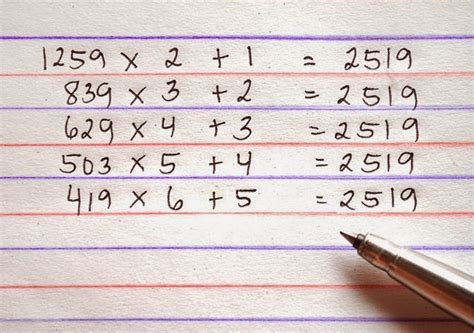 1259 x 2 + 1 = 2519
839 x 3 + 2 = 2519
629 x 4 + 3 = 2519
503 x 5 + 4 = 2519
419 x 6 + 5 = 2519